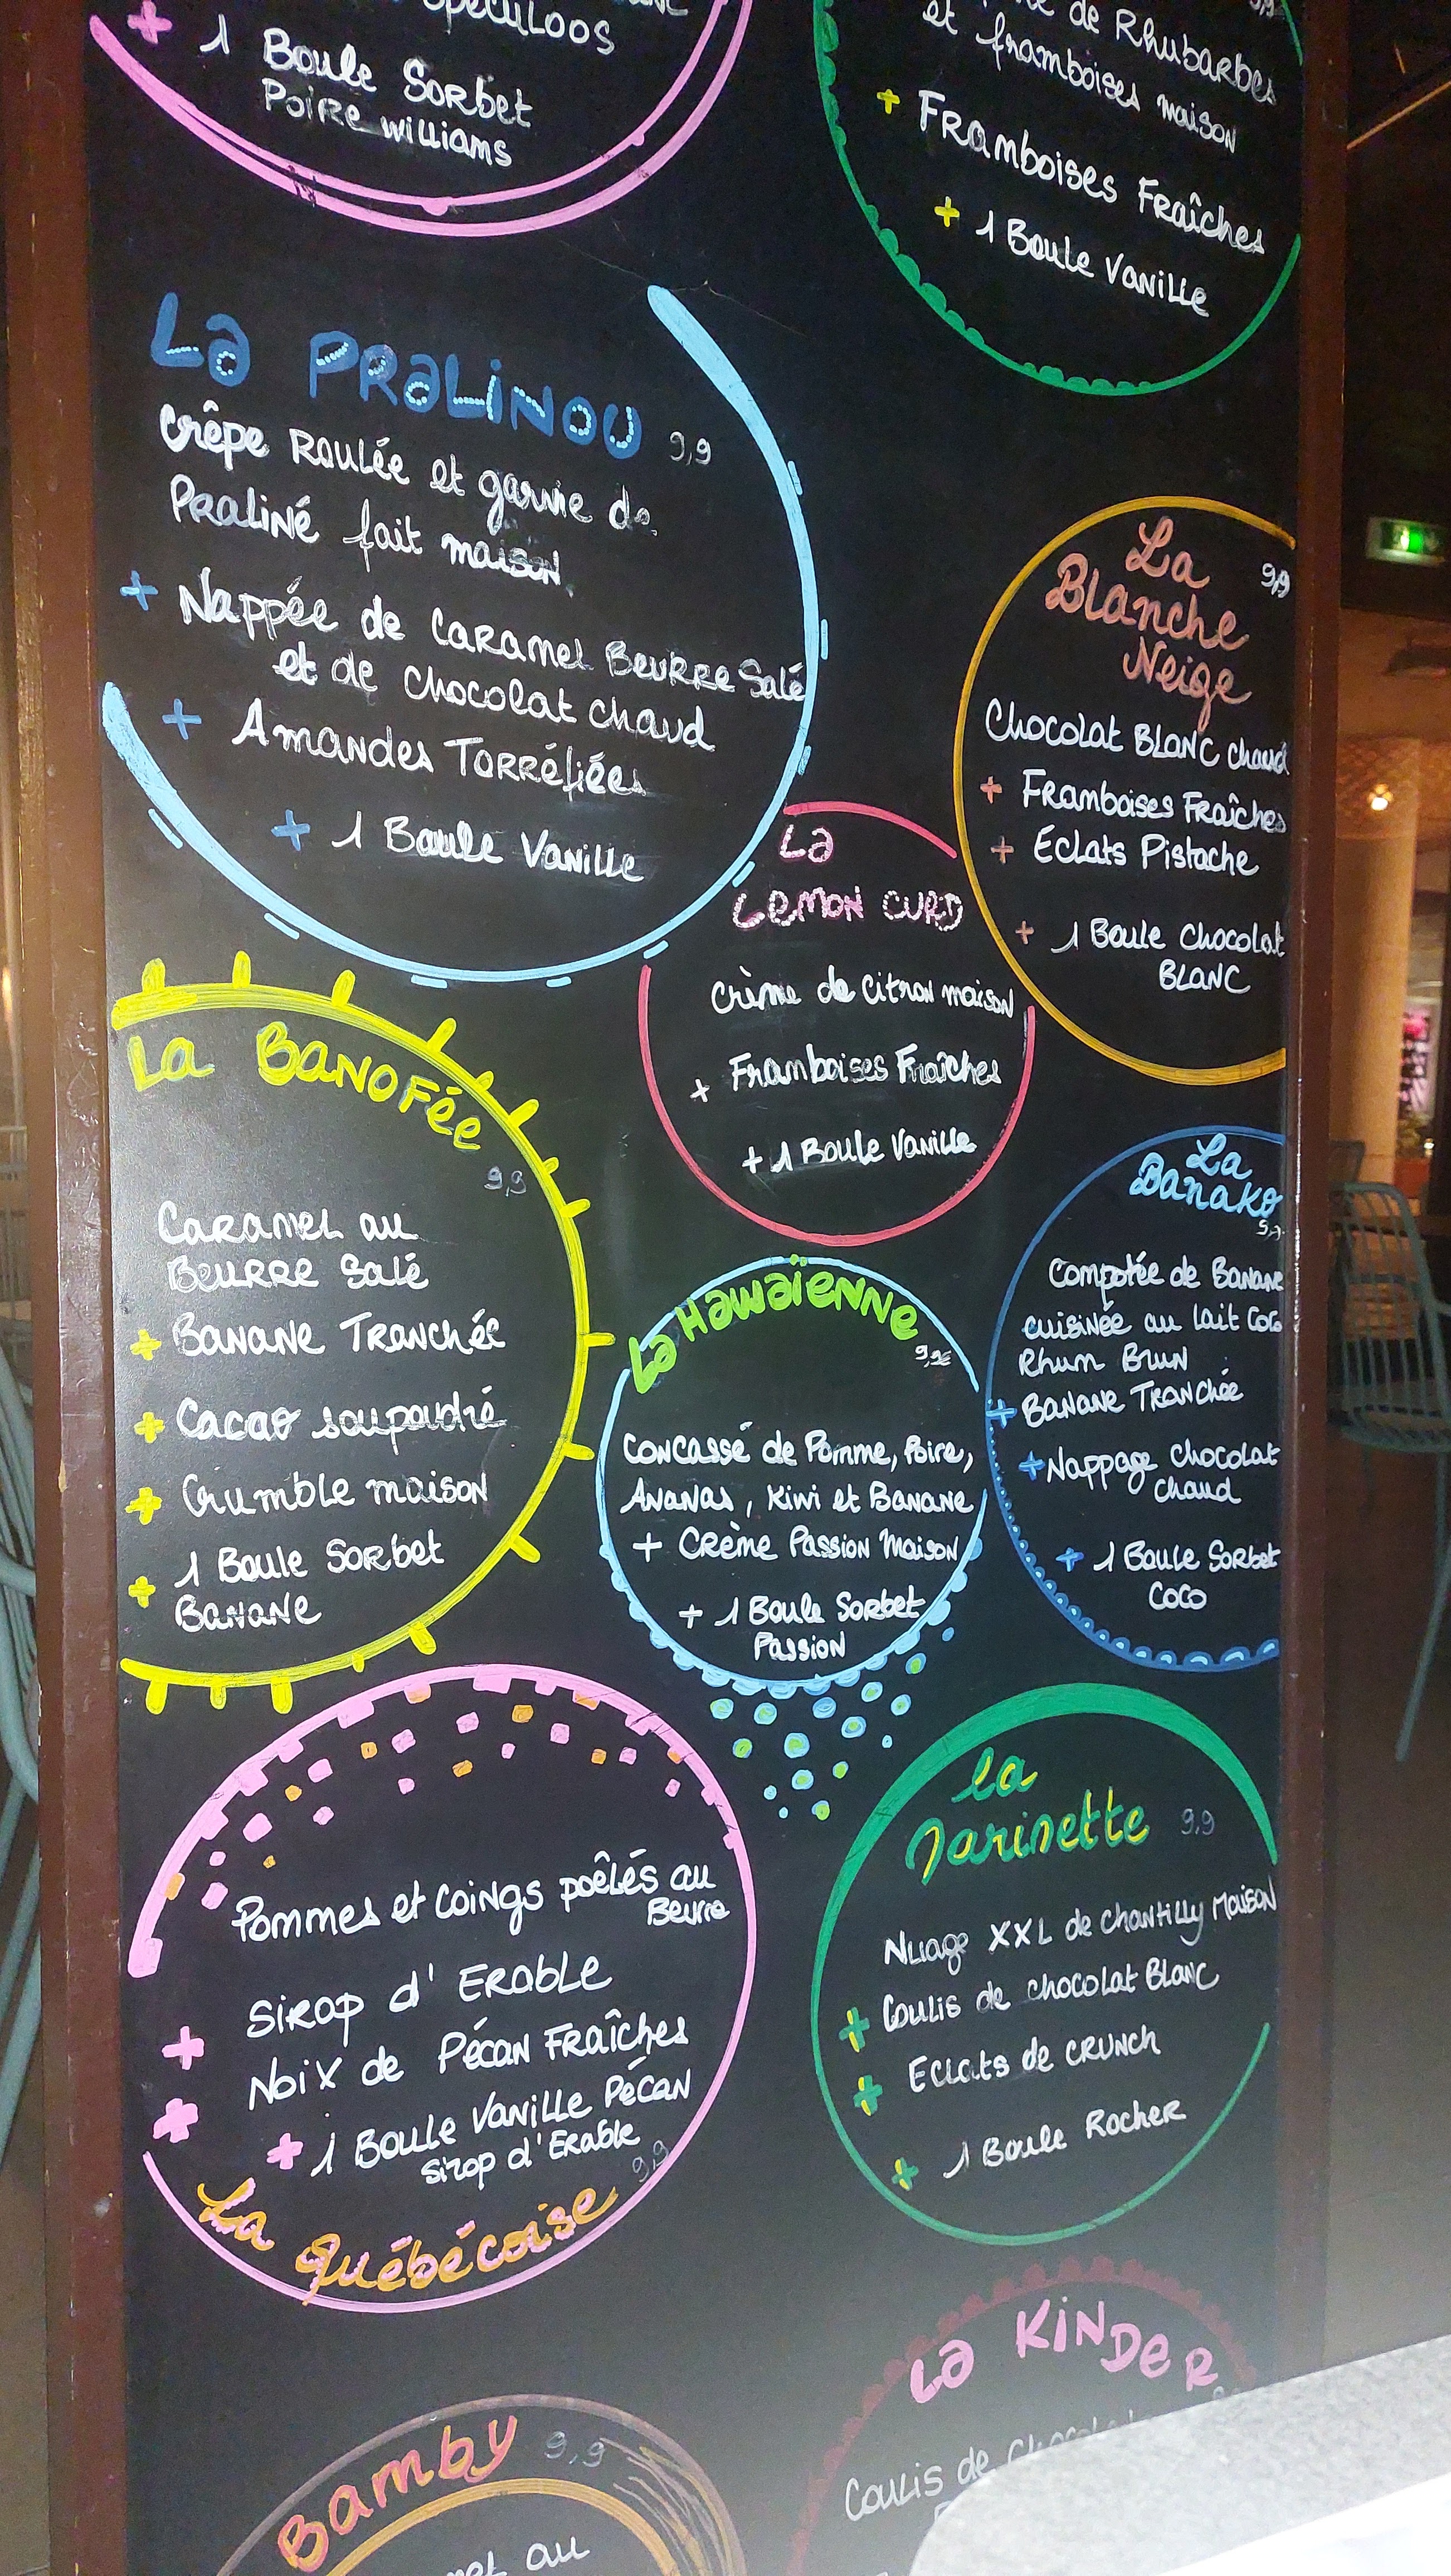 SPECULOOS
+ 1 Boule Sorbet
Poire williams
de Rhubarbes
et framboises maison
+ Framboises Fraîches
+ 1 Boule Vanille
La Pralinou 9,9
Crêpe Roulée et garnie de
Praliné fait maison
+ Nappée de Caramel Beurre Salé
et de Chocolat chaud
+ Amandes Torréfiées
+ 1 Boule Vanille
La
Blanche
Neige 9,9
Chocolat Blanc chaud
+ Framboises Fraîches
+ Eclats Pistache
+ 1 Boule Chocolat
Blanc
La
Lemon Curd
Crème de Citron maison
+ Framboises Fraîches
+ 1 Boule Vanille
La Banofée
9,9
Caramel au
Beurre Salé
+ Banane Tranchée
+ Cacao soupoudré
+ Crumble maison
+ 1 Boule Sorbet
Banane
La Hawaïenne
9,9€
Concassé de Pomme, Poire,
Ananas, Kiwi et Banane
+ Crème Passion Maison
+ 1 Boule Sorbet
Passion
La
Banako
Compotée de Banane
cuisinée au lait Coco
Rhum Brun
+ Banane Tranchée
+ Nappage Chocolat
chaud
+ 1 Boule Sorbet
Coco
Pommes et Coings poêlés au
Beurre
Sirop d'Erable
+ Noix de Pécan Fraîches
+ 1 Boule Vanille Pécan
Sirop d'Erable
9,9
La Québécoise
la
Jarinette 9,9
Nuage XXL de Chantilly Maison
+ Coulis de chocolat Blanc
+ Eclats de CRUNCH
+ 1 Boule Rocher
La Kinder
Coulis de
Bamby 9,9
au